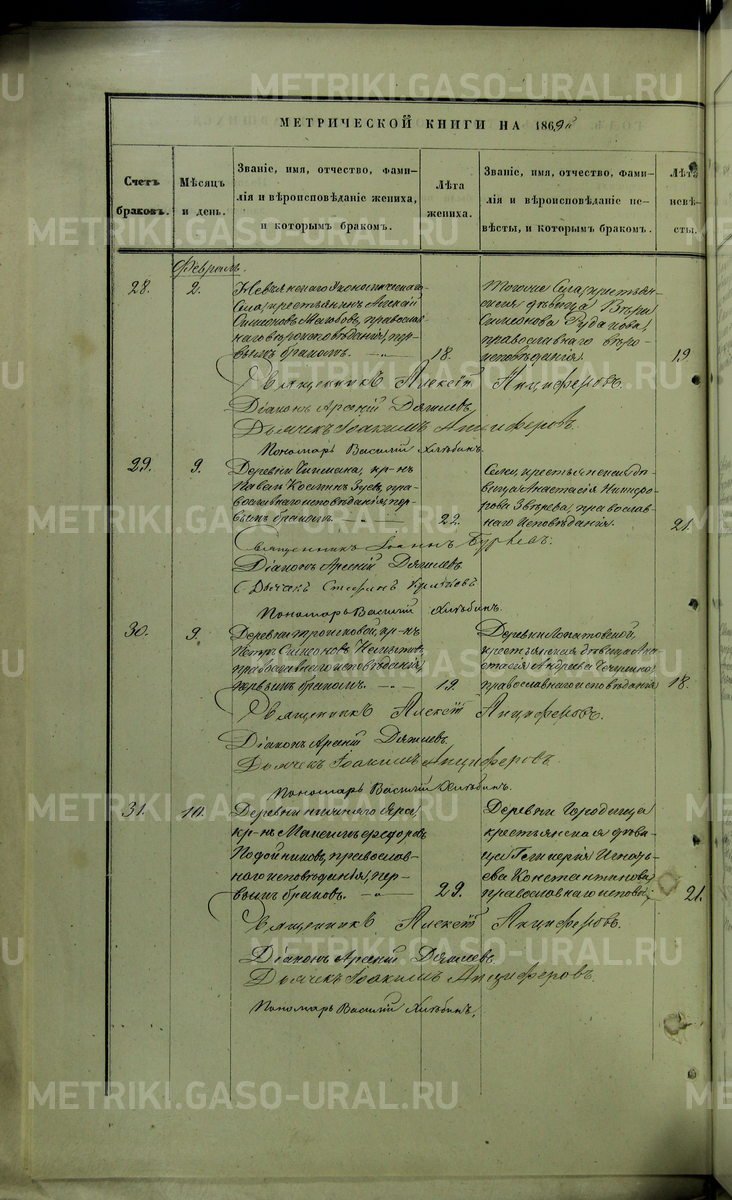 МЕТРИЧЕСКОЙ КНИГИ НА 1869й
Счетъ браковъ.
Мѣсяцъ и день.
Званіе, имя, отчество, фами-
лія и вѣроисповѣданіе жениха,
и которымъ бракомъ.
Лѣта
жениха.
Званіе, имя, отчество, фами-
лія и вѣроисповѣданіе не-
вѣсты, и которымъ бракомъ.
Лѣта
невѣ-
сты.
Февраль.
28. 2.
Села, крестьянинъ Алексѣй
Симеоновъ православ-
наго вѣроисповѣданія, пер-
вымъ бракомъ. 18.
Тогоже Села, крестьян-
ская дѣвица Вѣра
Симеонова Рудакова,
православнаго вѣро-
исповѣданія. 19
Священникъ Алексѣй Анциферовъ.
Діаконъ Арсеній Дягилевъ
Дьячекъ Іоакимъ Анциферовъ.
Пономарь Василій Хлѣбинъ.
29. 9.
Деревни кр-нъ
Павелъ Косминъ Зуевъ, пра-
вославнаго исповѣданія, пер-
вымъ бракомъ. 22.
Села, крестьянская дѣ-
вица Анастасія Никифо-
рова Звѣрева, православ-
наго исповѣданія. 21.
Священникъ Іоаннъ
Діаконъ Арсеній Дягилевъ
Дьячекъ Стефанъ
Пономарь Василій Хлѣбинъ.
30. 9.
Деревни кр-нъ
Петръ Симеоновъ
православнаго исповѣданія,
первымъ бракомъ. 19.
Деревни Лопатовской,
крестьянская дѣвица Ана-
стасія Андреева
православнаго исповѣданія 18.
Священникъ Алексѣй Анциферовъ.
Діаконъ Арсеній Дягилевъ.
Дьячекъ Іоакимъ Анциферовъ
Пономарь Василій Хлѣбинъ.
31. 10.
Деревни нижняго Яра,
кр-нъ Максимъ Федоровъ
Подойниковъ, православ-
наго исповѣданія, пер-
вымъ бракомъ. 29.
Деревни Городища
крестьянская дѣви-
ца Гликерія Игнать-
ева Константинова,
православнаго исповѣд: 21.
Священникъ Алексѣй Анциферовъ.
Діаконъ Арсеній Дягилевъ
Дьячекъ Іоакимъ Анциферовъ.
Пономарь Василій Хлѣбинъ.
METRIKI.GASO-URAL.RU